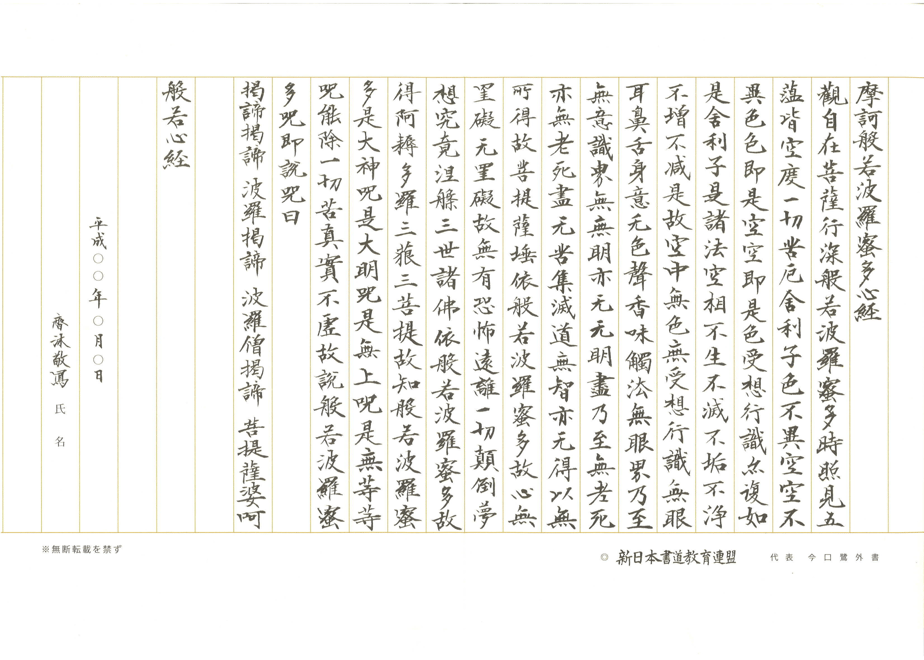 摩訶般若波羅蜜多心経
觀自在菩薩行深般若波羅蜜多時照見五
蕴皆空度一切苦厄舍利子色不異空空不
異色色即是空空即是色受想行識亦復如
是舍利子是諸法空相不生不滅不垢不浄
不増不減是故空中無色無受想行識無眼
耳鼻舌身意无色聲香味觸法無眼界乃至
無意識界無無明亦无无明盡乃至無老死
亦無老死盡无苦集滅道無智亦无得以無
所得故菩提薩埵依般若波羅蜜多故心無
罣礙无罣礙故無有恐怖遠離一切顛倒夢
想究竟涅槃三世諸佛依般若波羅蜜多故
得阿耨多羅三藐三菩提故知般若波羅蜜
多是大神呪是大明呪是無上呪是無等等
呪能除一切苦真實不虚故説般若波羅蜜
多呪即説呪曰
揭諦揭諦 波羅揭諦 波羅僧揭諦 菩提薩婆呵
般若心経
平成〇〇年〇月〇日
齋沐敬寫 氏名
◎ 新日本書道教育連盟 代表 今口鷺外書
※無断転載を禁ず